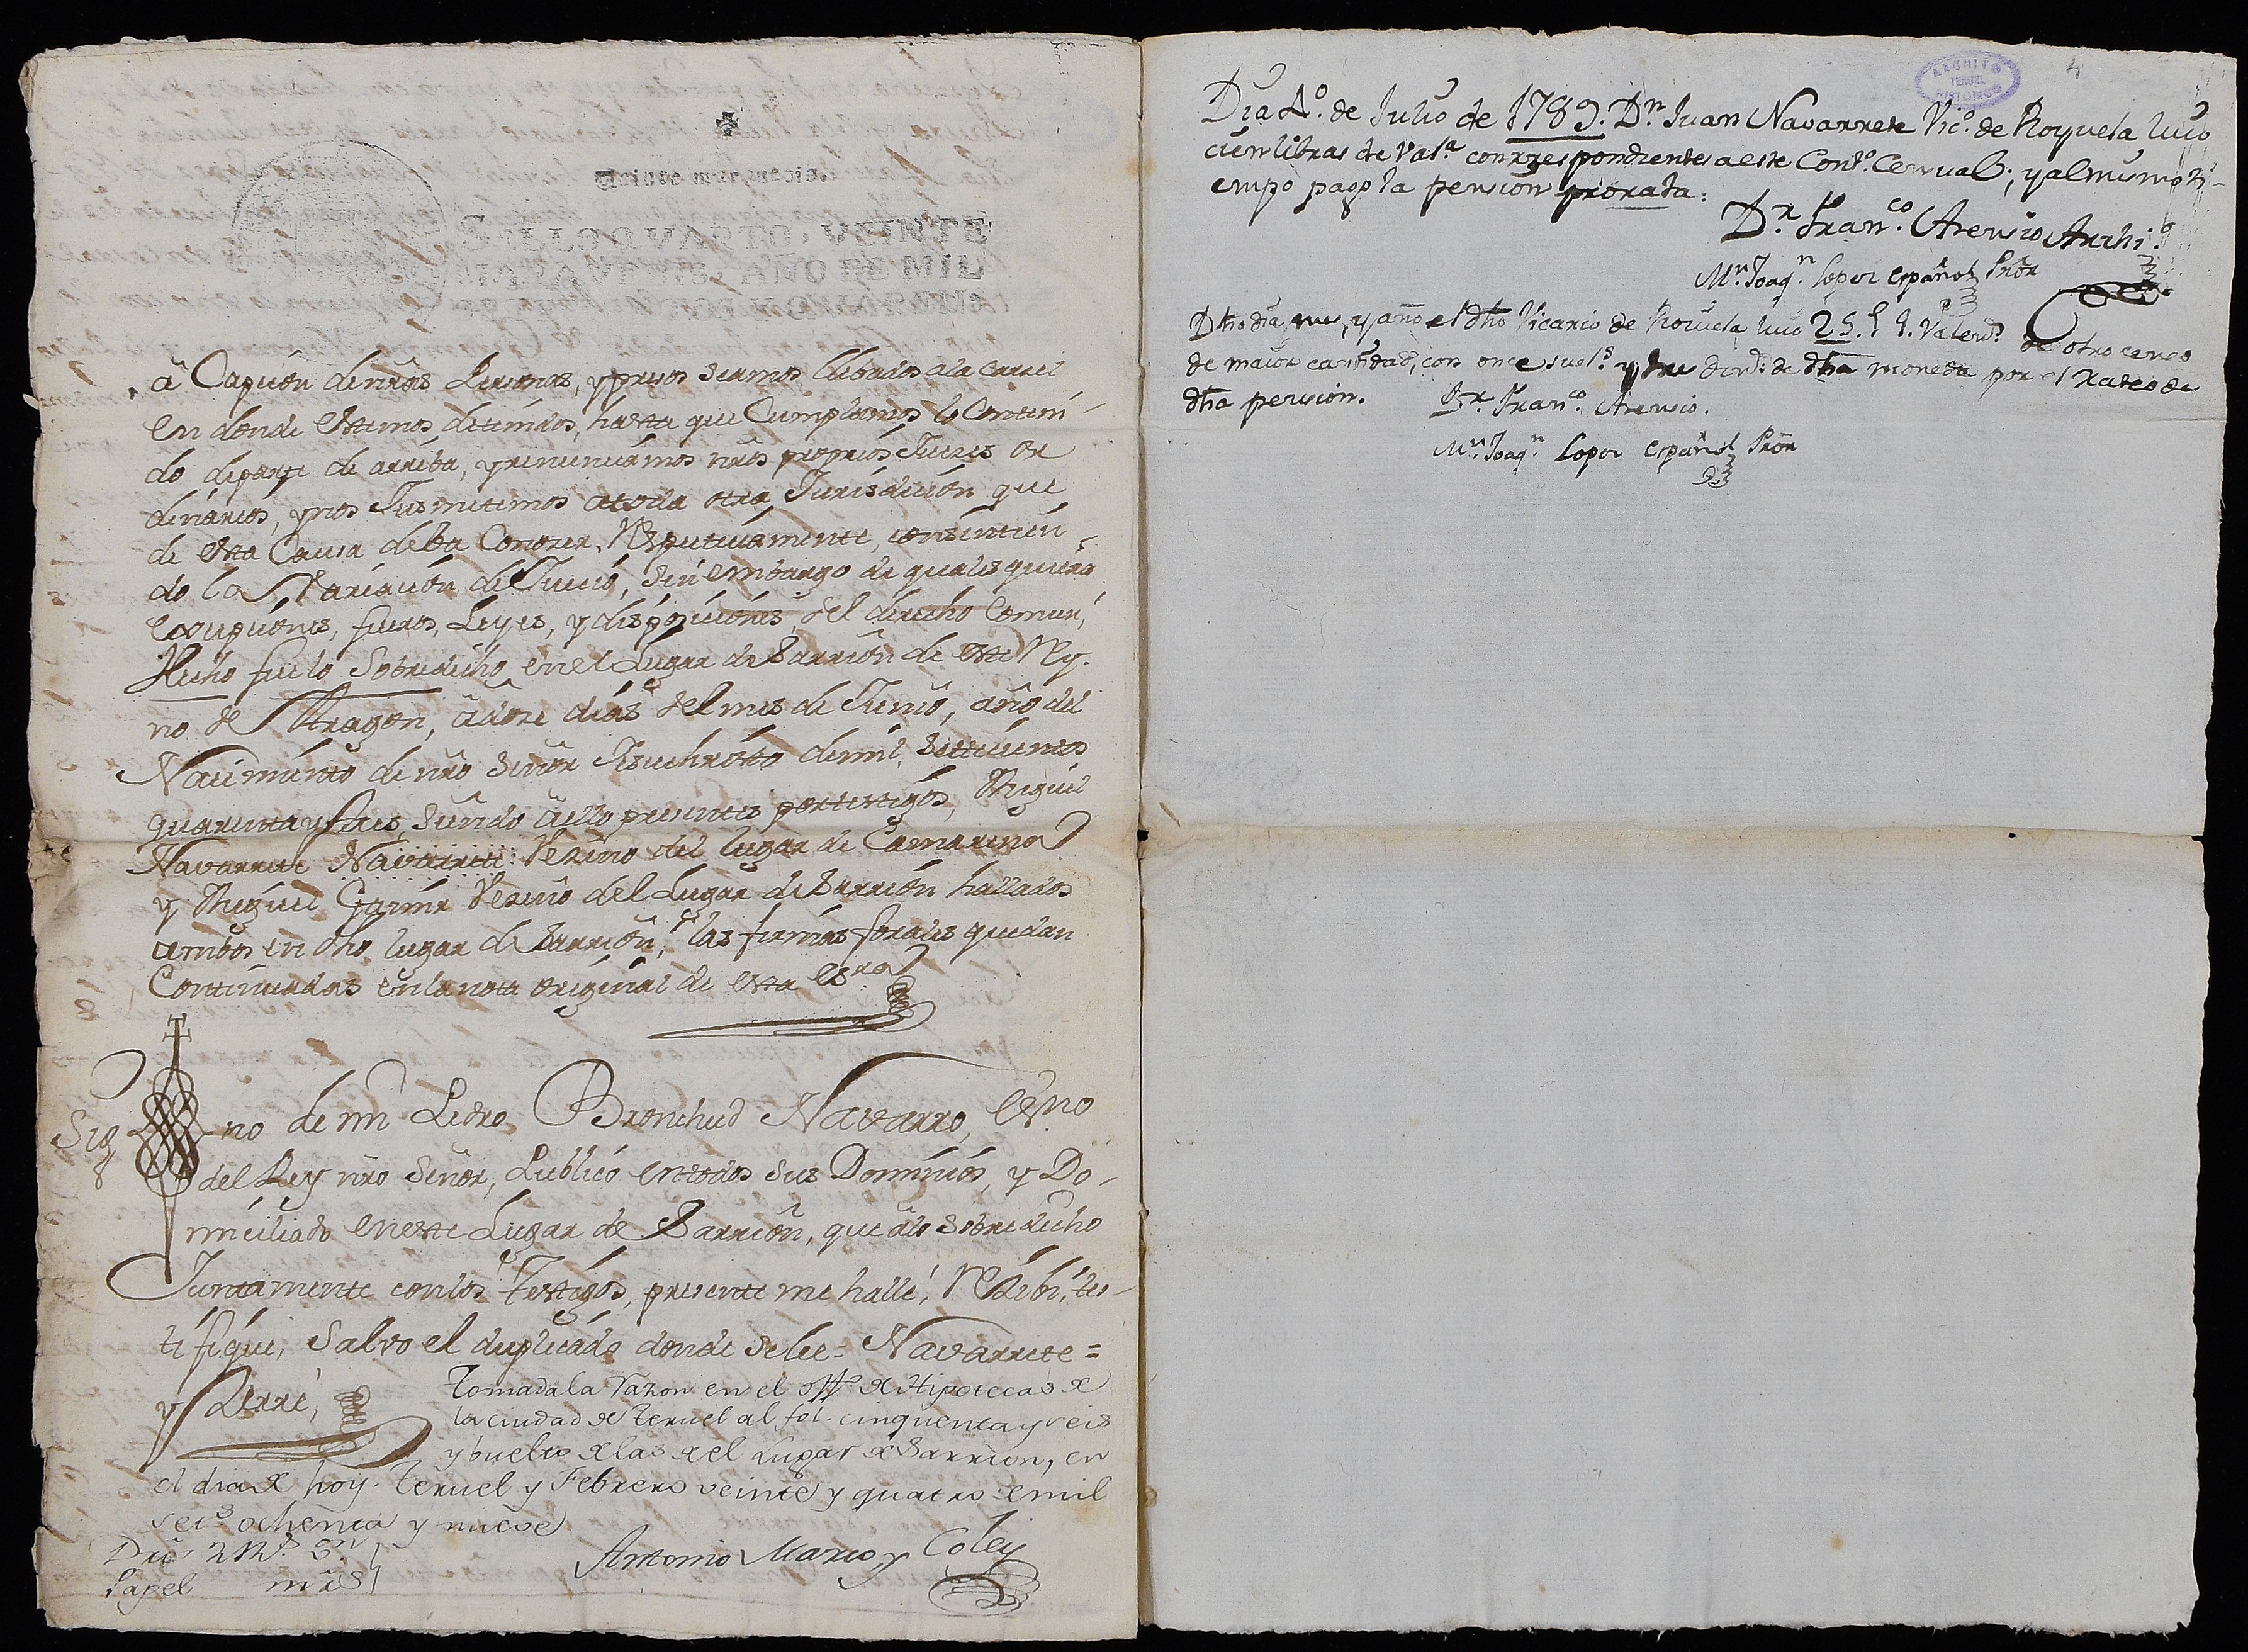 Veinte maravedis.
SELLO QVARTO, VEINTE
MARAVEDIS, AÑO DE MIL
à Capcion de nr̃as Personas, y presos seamos llebados a la carcel
en donde estemos detenidos, hasta que Cumplamos lo Conteni-
do de parte de arriba, y renunciamos nr̃os proprios Jueces or
dinarios, y nos Jusmetimos a toda otra Jurisdicion que
de esta Causa deba Conozer, Respectivamente, consintien-
do la Variacion de Juicio, sin embargo de qualesquiera
excepciones, fueros, Leyes, y disposiciones del derecho Comun,
Hecho fue lo Sobredicho en el Lugar de Sarrion de este Rey-
no de Aragon, à doze dias del mes de Junio, año del
Nacimiento de nr̃o Señor Jesuchristo de mil, Setecientos
quarenta y tres, siendo à ello presentes por testigos, Miguel
Navarrete Navarrete Vezino del lugar de Camarena
y Miguel Gazmir Vezino del Lugar de Sarrion hallados
ambos en dho lugar de Sarrion, las firmas forales quedan
Continuadas en la nota original de esta es.ra
Sig no de mi Pedro Bronchud Navarro, Es.no
del Rey nr̃o Señor, Publico en todos sus Dominios, y Do-
miciliado en este Lugar de Sarrion, que à lo Sobredicho
Juntamente con los Testigos, presente me hallé, Rezibi, tes-
tifiqué, Salvo el duplicado donde se lee = Navarrete =
y Zerré,
Tomada la razon en el off.o de Hipotecas de
la ciudad de Teruel al fol. cinquenta y seis
y buelto de las del Lugar de Sarrion, en
el dia de hoy. Teruel y Febrero veinte y quatro de mil
set.s ochenta y nueve
Dros 2 R.s
Papel mr̃s
Antonio Marco y Coley
ARCHIVO
TERUEL
HISTORICO
4
Dia 1º. de Julio de 1789. D.n Juan Navarrete Vic.o de Royuela luio
cien libras de Val.a correspondientes a este Cont.o Censual; y al mismo ti-
empo pagó la pension prorata:
D.r Fran.co Asensio Archi.o
M.n Joaq.n Lopez Español Pr̃or
Dho dia, mes, y año el dho Vicario de Roiuela luio 25. L. Valen.s de otro censo
de maior cantidad, con once suel.s y tres din.s de dha moneda por el rateo de
dha pension.
D.r Fran.co Asensio.
M.n Joaq.n Lopez Español Pr̃or